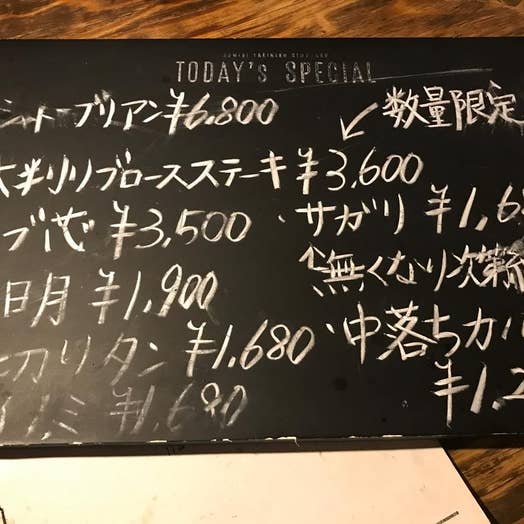 TODAY's SPECIAL
シャトーブリアン ¥6.800
数量限定
大判リブロースステーキ ¥3,600
ブ芯 ¥3,500
・サガリ ¥1,6
↑無くなり次第
日月 ¥1,900
切りタン ¥1.680
・中落ちカル
¥1.2
ミ ¥1.680